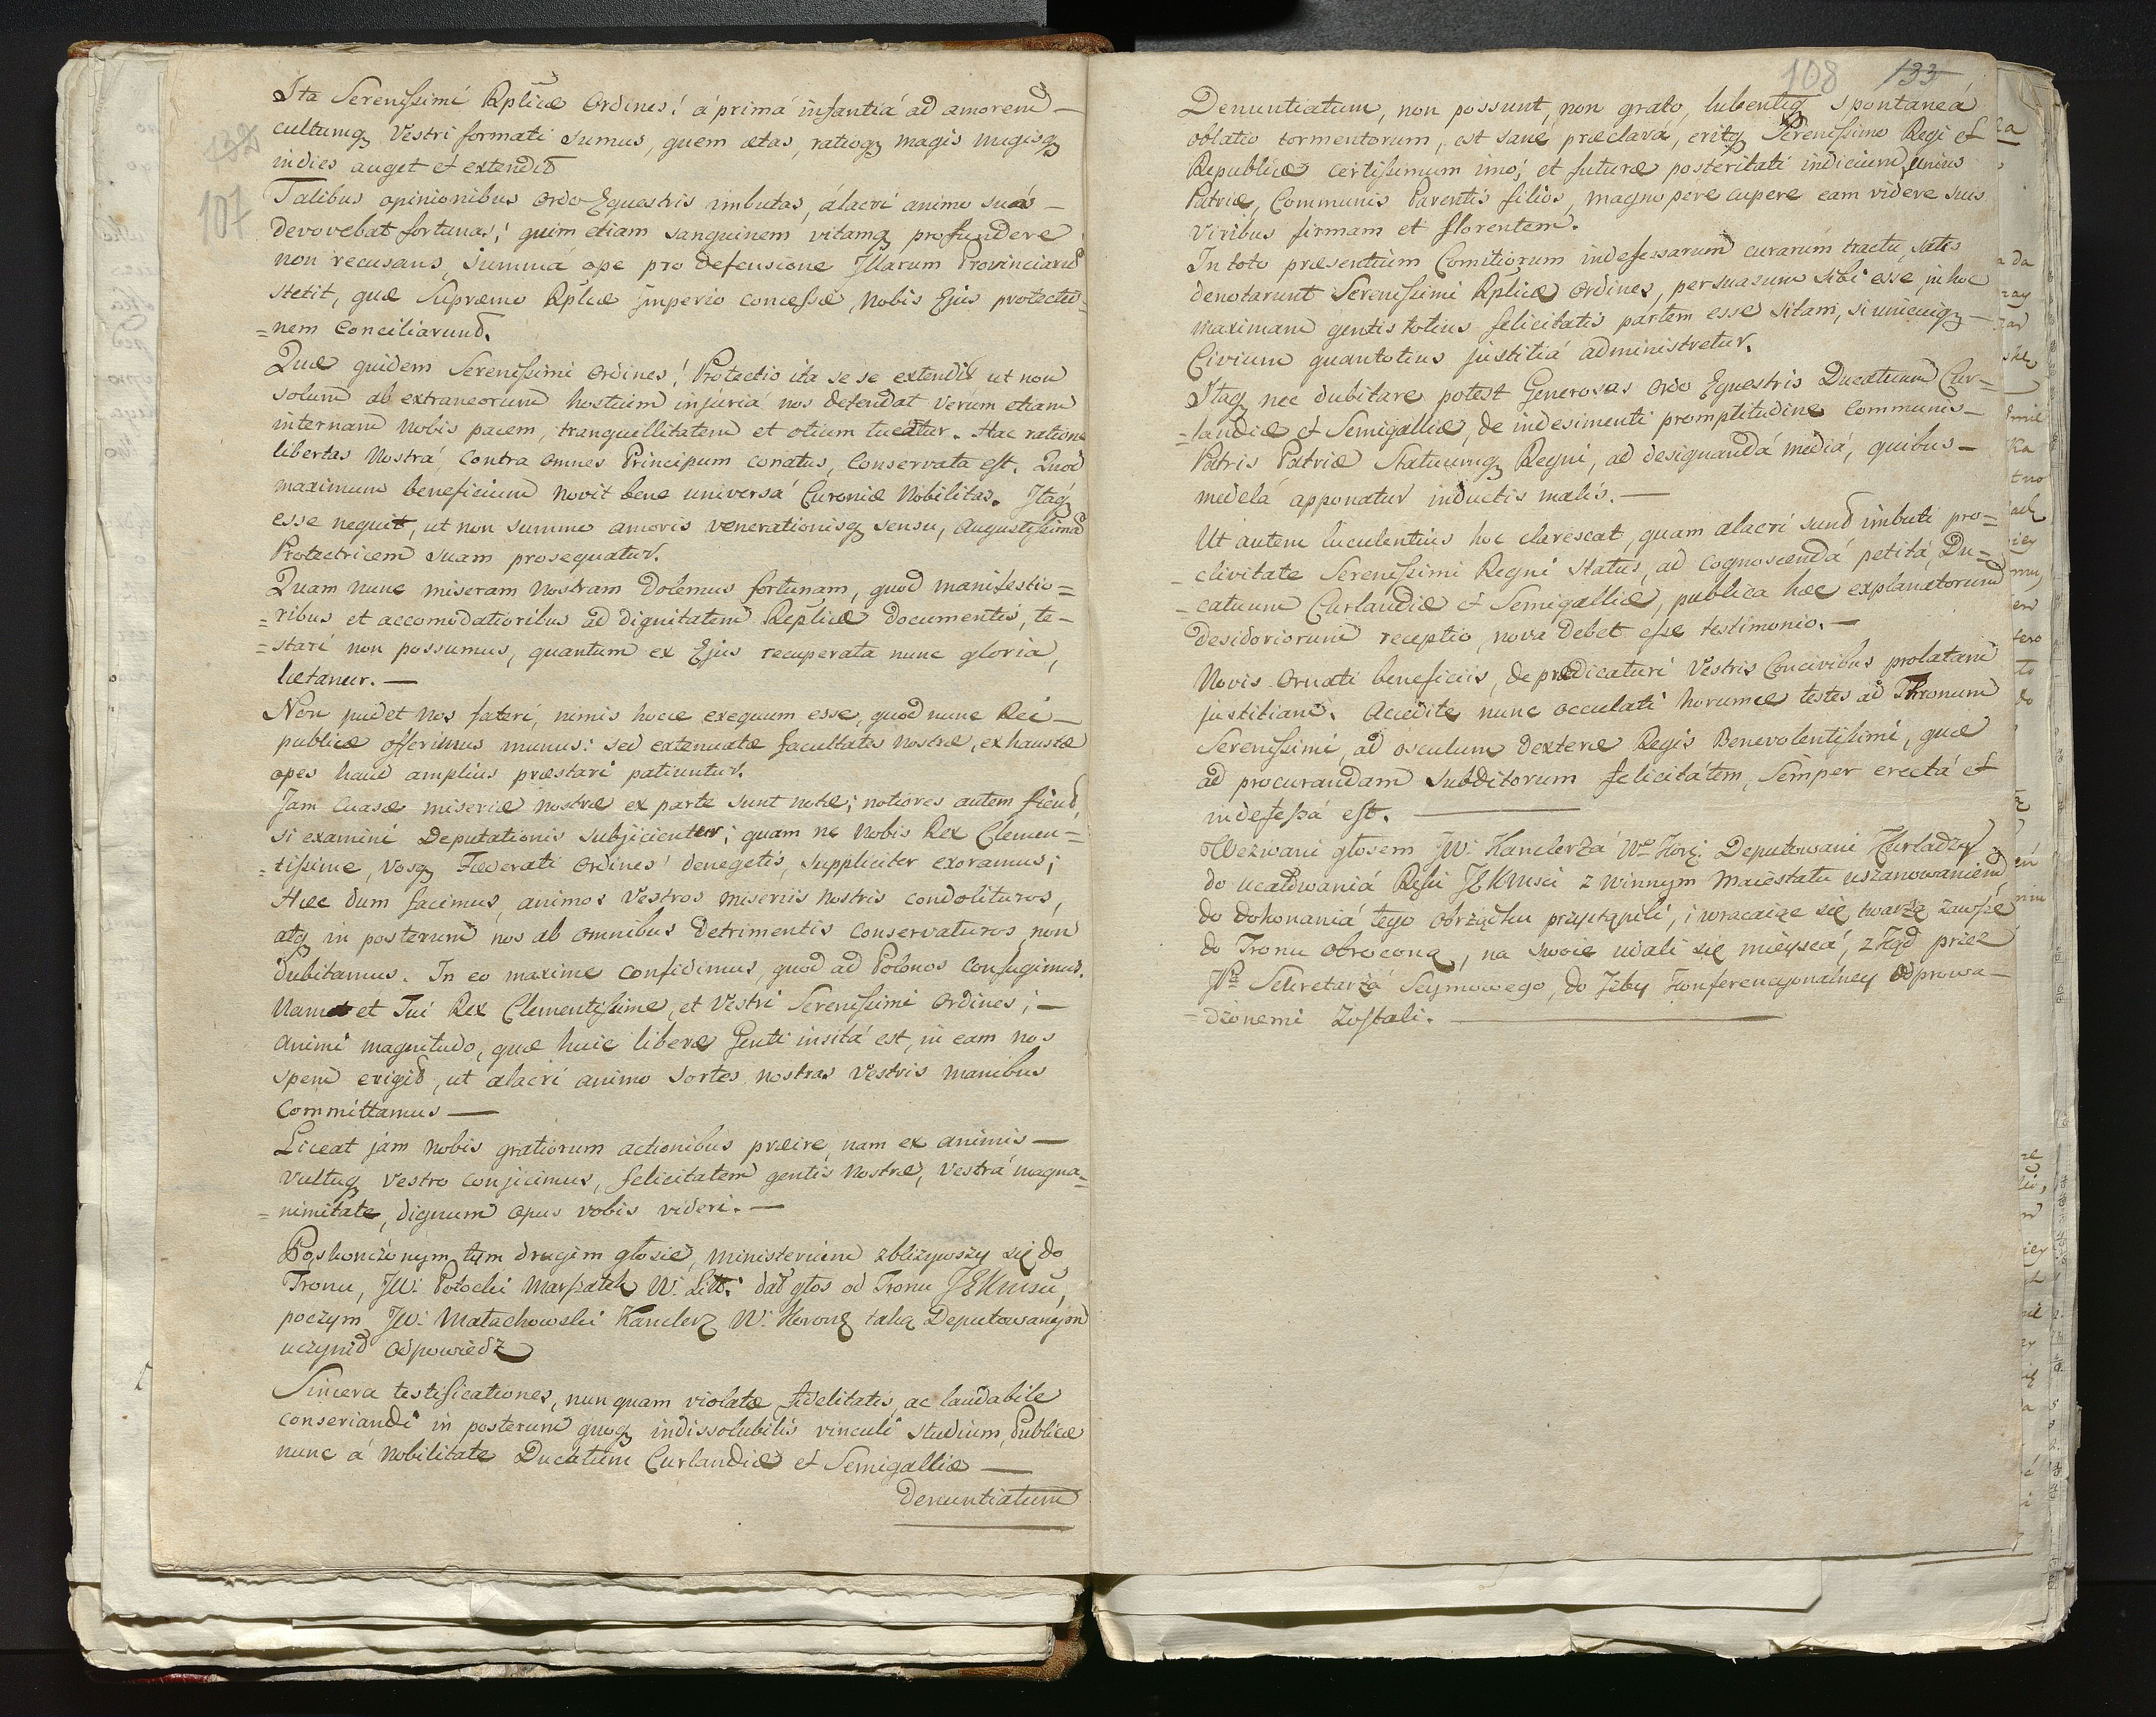 132
107
Ita Serenissimi Rplicæ Ordines! á primá infantiá ad amorem
cultumq; Vestri formati sumus, quem ætas, ratioq; magis magisq;
indies auget et extendit
Talibus opinionibus Ordo Equestris imbutas, alacri animo suás
devovebat fortunas; quim etiam sanguinem vitamq; profundere
non recusans, summá ope pro defensione Illarum Provinciarum
stetit, quæ Supremo Rplicæ Imperio concessæ, Nobis Ejus protectio=
=nem Conciliarunt.
Quæ quidem Serenissimi Ordines! Protectio ita se se extendit ut non
solum ab extraneorum hostium injuriá nos defendat verum etiam
internam Nobis pacem, tranquillitatem et otium tueatur. Hac ratione
libertas Nostrá, Contra Omnes Principum conatus, Conservata est. Quod
maximum beneficium novit bene universá Curoniæ Nobilitas. Itaq;
esse nequit, ut non summo amoris venerationisq; sensu, Augustissimam
Protectricem suam prosequatur.
Quam nunc miseram Nostram Dolemus fortunam, quod manifestio=
=ribus et accomodatioribus ad dignitatem Replicæ Documentis, te-
=stari non possumus, quantum ex Ejus recuperata nunc gloria,
lætamur. —
Non pudet Nos fateri, nimis hocce exequum esse, quod nunc Rei-
publicæ offerimus munus: sed extenuatæ facultates nostræ, exhaustæ
opes haud amplius præstari patiuntur.
Jam Causæ miseriæ Nostræ ex parte sunt notæ; notiores autem fient,
si examini Deputationis subjicientur; quam ne Nobis Rex Clemen=
=tissime, Vosq; Fæderati Ordines! denegetis, suppliciter exoramus;
Hæc dum facimus, animos Vestros miseriis Nostris condolituros,
atq; in posterum nos ab omnibus Detrimentis Conservaturos, non
dubitamus. In eo maxime confidimus, quod ad Polonos Confugimus.
Nam et Tui Rex Clementissime, et Vestri Serenissimi Ordines; —
Animi magnitudo, quæ huic liberæ Genti insitá est, in eam nos
spem erigit, ut alacri animo sortes nostras Vestris manibus
Committamus —
Liceat jam Nobis gratiorum actionibus præire, nam ex animis —
vultuq; Vestro conjicimus, felicitatem gentis Nostræ, Vestrá magna=
=nimitate, dignum Opus vobis videri. —
Poskonczonym tym drugim głosie, Ministerium zbliżywszy się do
Tronu, JW. Potocki Marszałek W. Litt: dał głos od Tronu JEKmsci,
poczym JW. Małachowski Kanclerz W. Koronę taką Deputowanym
uczynił Odpowiedź
Sincera testificationes, nunquam violatæ fidelitatis, ac laudabile
conseriandi in posterum quoq; indissolubilis vinculi studium, Publicæ
nunc á Nobilitate Ducatum Curlandiæ et Semigalliæ —
Denuntiatum
108 133
Denuntiatum, non possunt, non grato, lubentiq; spontaneá
oblatio tormentorum, est sane præclara, eritq; Serenissimo Regi et
Republicæ certissimum imo, et futuræ posteritati indicium, unius
Patriæ, Communis Parentis filios, magno pere cupere eam videre suis
viribus firmam et florentem.
In toto præsentium Comitiorum indefessarum curarum tractu, satis
denotarunt Serenissimi Rplicæ Ordines, persuasum sibi esse, in hoc
maximam gentis totius felicitatis partem esse sitam, si unicuiq; —
Civium quantotius justitiá administretur.
Itaq; nec dubitare potest Generosas Ordo Equestris Ducatuum Cur=
=landiæ et Semigalliæ, de indesimenti promptitudine Communis —
Patris Patriæ Statuumq; Regni, ad designandá mediá, quibus —
medelá apponatur inductis malis. —
Ut autem luculentius hoc clarescat, quam alacri sunt imbuti pro=
=clivitate Serenissimi Regni Status, ad cognoscendá petitá, Du=
=catuum Curlandiæ et Semigalliæ, publica hæc explanatorum
desidoriorum receptio, nova Debet esse testimonio. —
Novis Ornati beneficiis, de prædicaturi Vestris Concivibus prolatam
justitiam. Accedite nunc occulati horumce testes ad Thronum
Serenissimi, ad osculum dexteræ Regis Benevolentissimi, quæ
ad procurandam Subditorum felicitátem, Semper erectá et
indefessá est. —
Wezwani głosem JW. Kanclerzá Wo Kor: Deputowani Kurladzy
do ucałowaniá Ręki JEKmsci z winnym Maiestatu uszanowaniem
do dokonaniá tego obrządku przystąpili, i wracaiąc się twarzą zawsze
do Tronu obroconą, na swoie udali się mieysca, zkąd przez
JPa Sekretarzá Seymowego, do Izby Konferencyonalney odprowa-
=dzonemi zostali. —